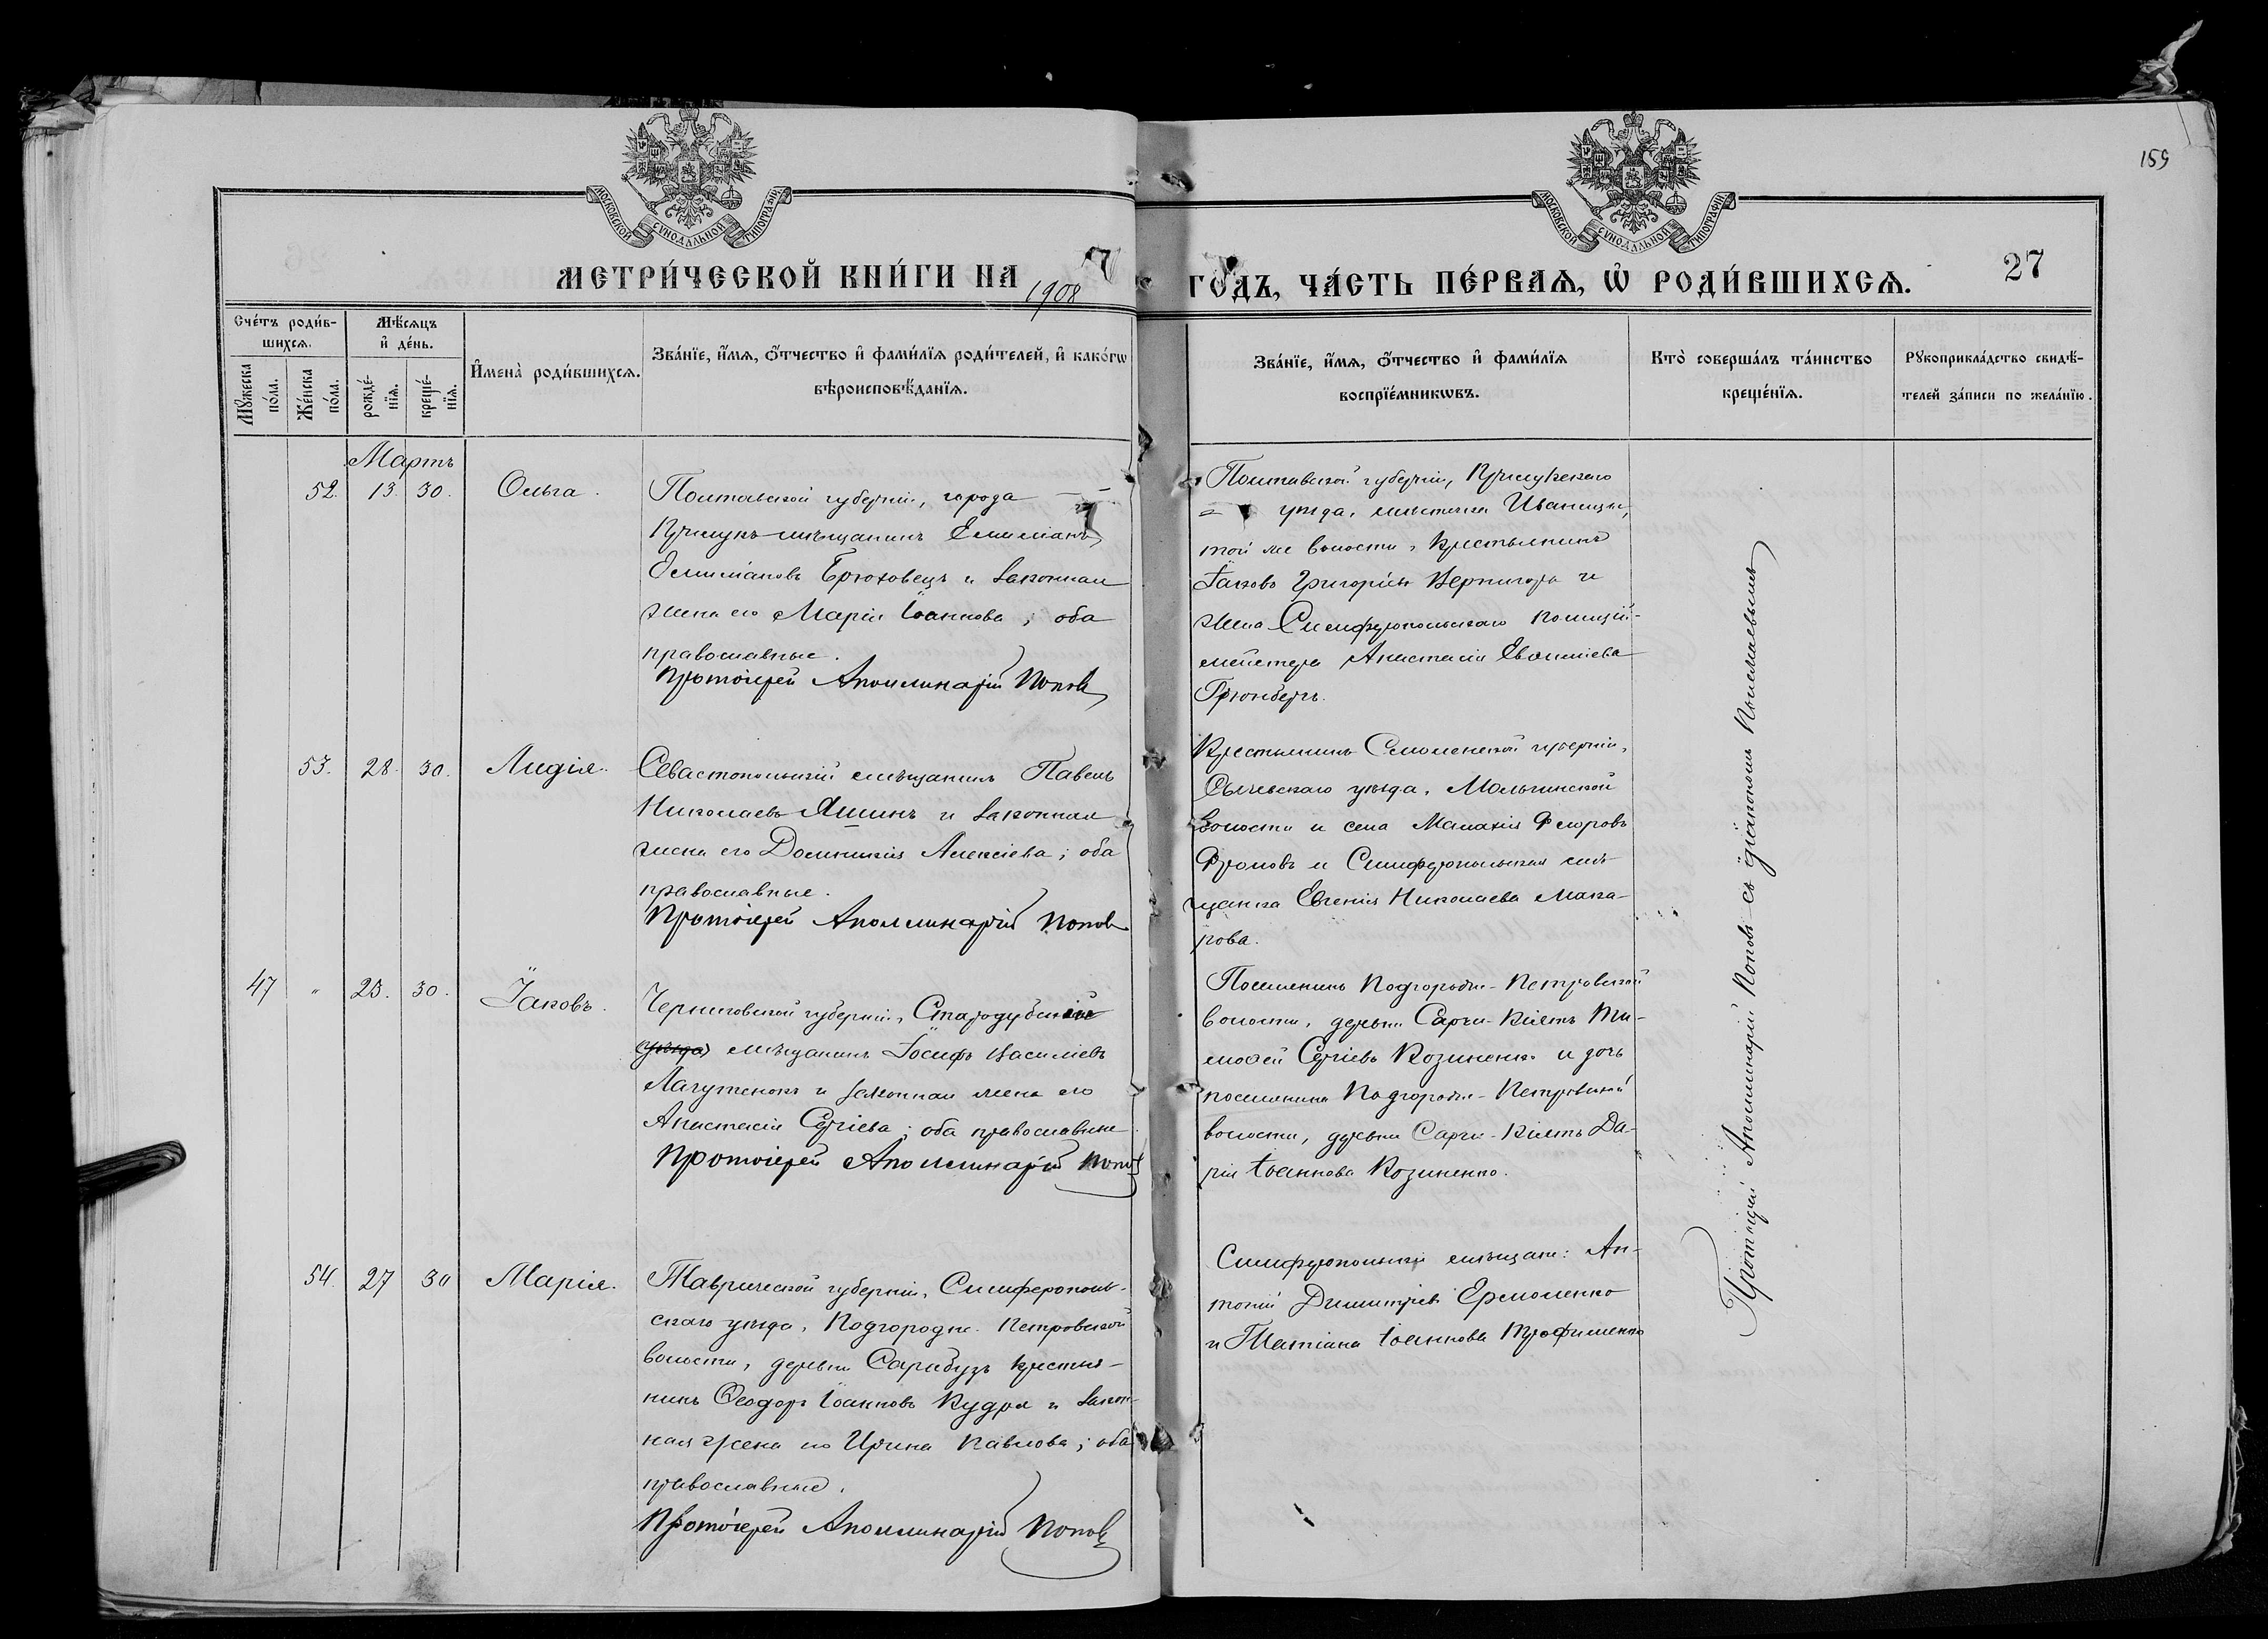 159
МОСКОВСКОЙ СѴНОДАЛЬНОЙ ТИПОГРАФІИ
МОСКОВСКОЙ СѴНОДАЛЬНОЙ ТИПОГРАФІИ
МЕТРИ́ЧЕСКОЙ КНИ́ГИ НА 1908 ГОДЪ, ЧА́СТЬ ПЕ́РВАЯ, Ѽ РОДИ́ВШИХСѦ.
27
Сче́тъ роди́в-
шихсѧ.
Мѣ́сѧцъ
и҆ де́нь.
Мꙋ́жеска по́ла.
Же́нска по́ла.
рожде́-
нїѧ.
креще́-
нїѧ.
И҆мена̀ роди́вшихсѧ.
Зва́нїе, и҆́мѧ, ѻ҆́тчество и҆ фами́лїѧ роди́телей, и҆ како́гѡ
вѣроисповѣ́данїѧ.
Зва́нїе, и҆́мѧ, ѻ҆́тчество и҆ фами́лїѧ
воспрїе́мникѡвъ.
Кто̀ соверша́лъ та́инство
креще́нїѧ.
Рꙋкоприкла́дство свидѣ́-
телей за́писи по жела́нїю.
Мартъ
52. 13. 30. Ольга.
Полтавской губерніи, города
Прилукъ мѣщанинъ Емиліанъ
Емиліановъ Брюховецъ и законная
жена его Марія Іоаннова; оба
православные.
Протоіерей Аполлинарій Поповъ
Полтавской губерніи, Прилукскаго
уѣзда, мѣстечка Иваницы,
той же волости, крестьянинъ
Іаковъ Григоріевъ Вернигора и
жена Симферопольскаго полицій-
мейстера Анастасія Евѳиміева
Грюнбергъ.
53. 28. 30. Лидія.
Севастопольскій мѣщанинъ Павелъ
Николаевъ Яшинъ и законная
жена его Домникія Алексіева; оба
православные.
Протоіерей Аполлинарій Поповъ
Крестьянинъ Смоленской губерніи,
Сычевскаго уѣзда, Мольгинской
волости и села Малахія Ѳеодоровъ
Фроловъ и Симферопольская мѣ-
щанка Евгенія Николаева Мака-
рова.
47 " 23. 30. Іаковъ.
Черниговской губерніи, Стародубскій
уѣзда мѣщанинъ Іосифъ Василіевъ
Лагутенокъ и законная жена его
Анастасія Сергіева; оба православные
Протоіерей Аполлинарій Поповъ
Поселянинъ Подгородне-Петровской
волости, деревни Сарчи-Кіятъ Ти-
моѳей Сергіевъ Козиненко и дочь
поселянина Подгородне-Петровской
волости, деревни Сарчи-Кіятъ Да-
рія Іоаннова Козиненко.
54. 27 30 Марія.
Таврической губерніи, Симферополь-
скаго уѣзда, Подгородне-Петровской
волости, деревни Сарабузъ крестья-
нинъ Ѳеодоръ Іоанновъ Кудря и закон-
ная жена его Ирина Павлова; оба
православные.
Протоіерей Аполлинарій Поповъ
Симферопольскіе мѣщане: Ан-
тоній Димитріевъ Ермоленко
и Татіана Іоаннова Трофименко
Протоіерей Аполлинарій Поповъ съ діакономъ